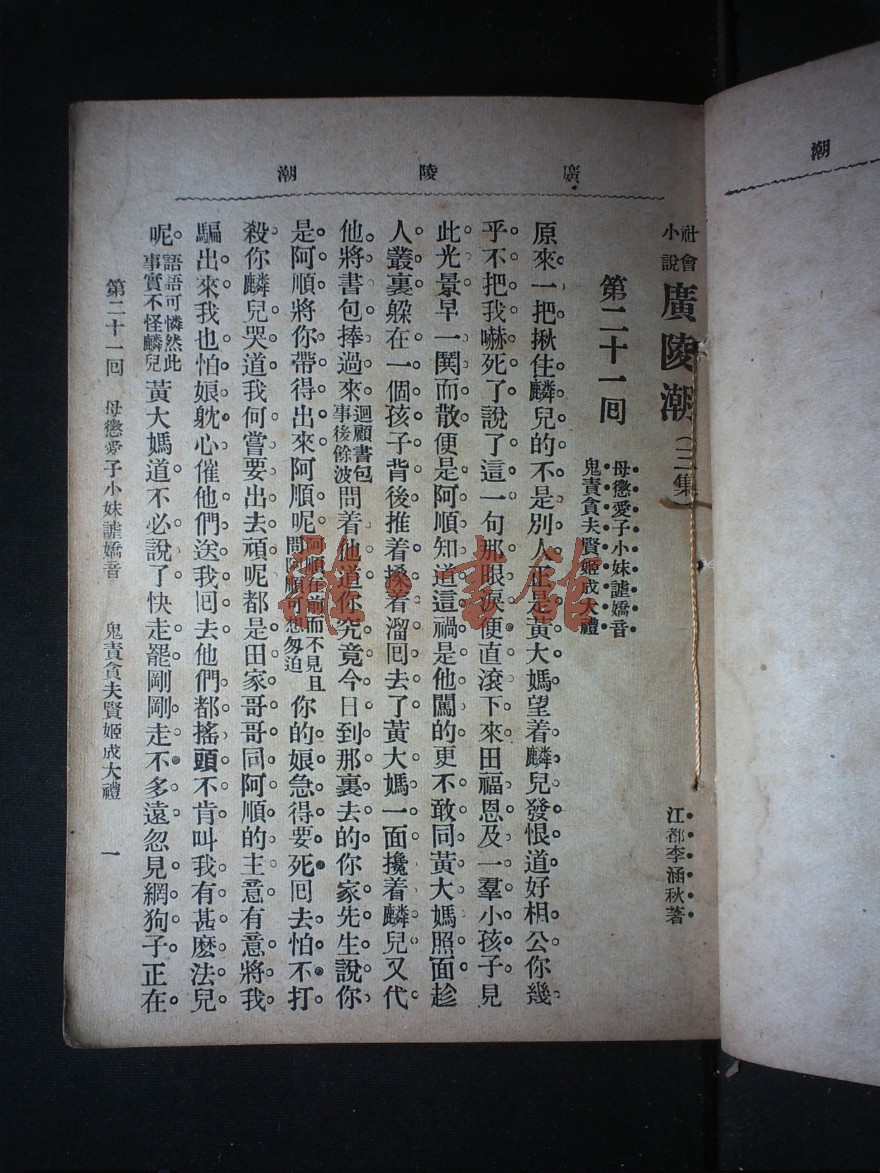 潮
廣陵潮
社會小說 廣陵潮（三集） 江都李涵秋著
第二十一回 母懲愛子小妹謔嬌音
鬼責貪夫賢姬成大禮
原來一把揪住麟兒的不是別人正是黃大媽望着麟兒發恨道好相公你幾
乎不把我嚇死了說了這一句那眼淚便直滾下來田福恩及一羣小孩子見
此光景早一鬨而散便是阿順知道這禍是他闖的更不敢同黃大媽照面趁
人叢裏躲在一個孩子背後推着搡着溜回去了黃大媽一面攙着麟兒又代
他將書包捧過來迴顧書包事後餘波問着他道你究竟今日到那裏去的你家先生說你
是阿順將你帶得出來阿順呢阿順在前而不見且問阿順可想匆迫你的娘急得要死回去怕不打
殺你麟兒哭道我何嘗要出去頑呢都是田家哥哥同阿順的主意有意將我
騙出來我也怕娘躭心催他們送我回去他們都搖頭不肯叫我有甚麽法兒
呢語語可憐然此事實不怪麟兒黃大媽道不必說了快走罷剛剛走不多遠忽見網狗子正在
第二十一回 母懲愛子小妹謔嬌音 鬼責貪夫賢姬成大禮 一
書館